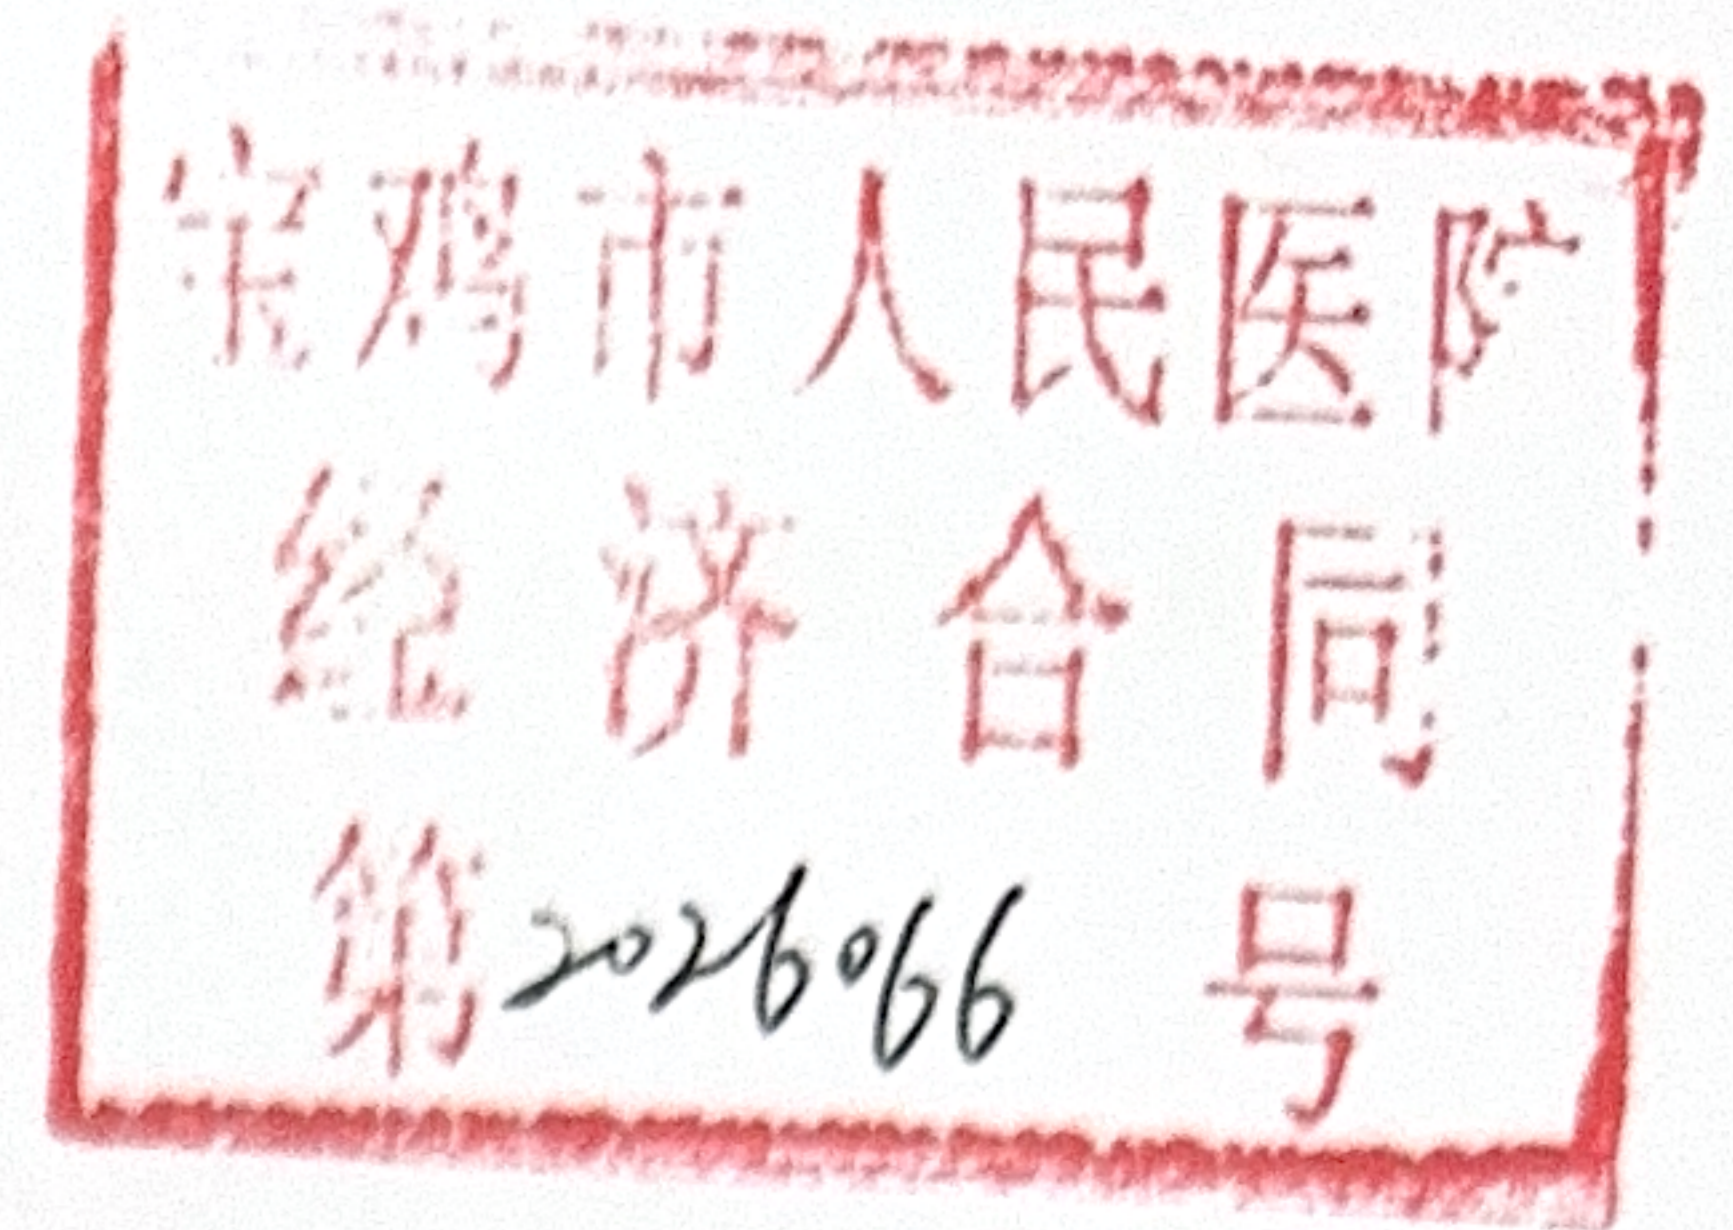 宝鸡市人民医院
经济合同
第2026066号